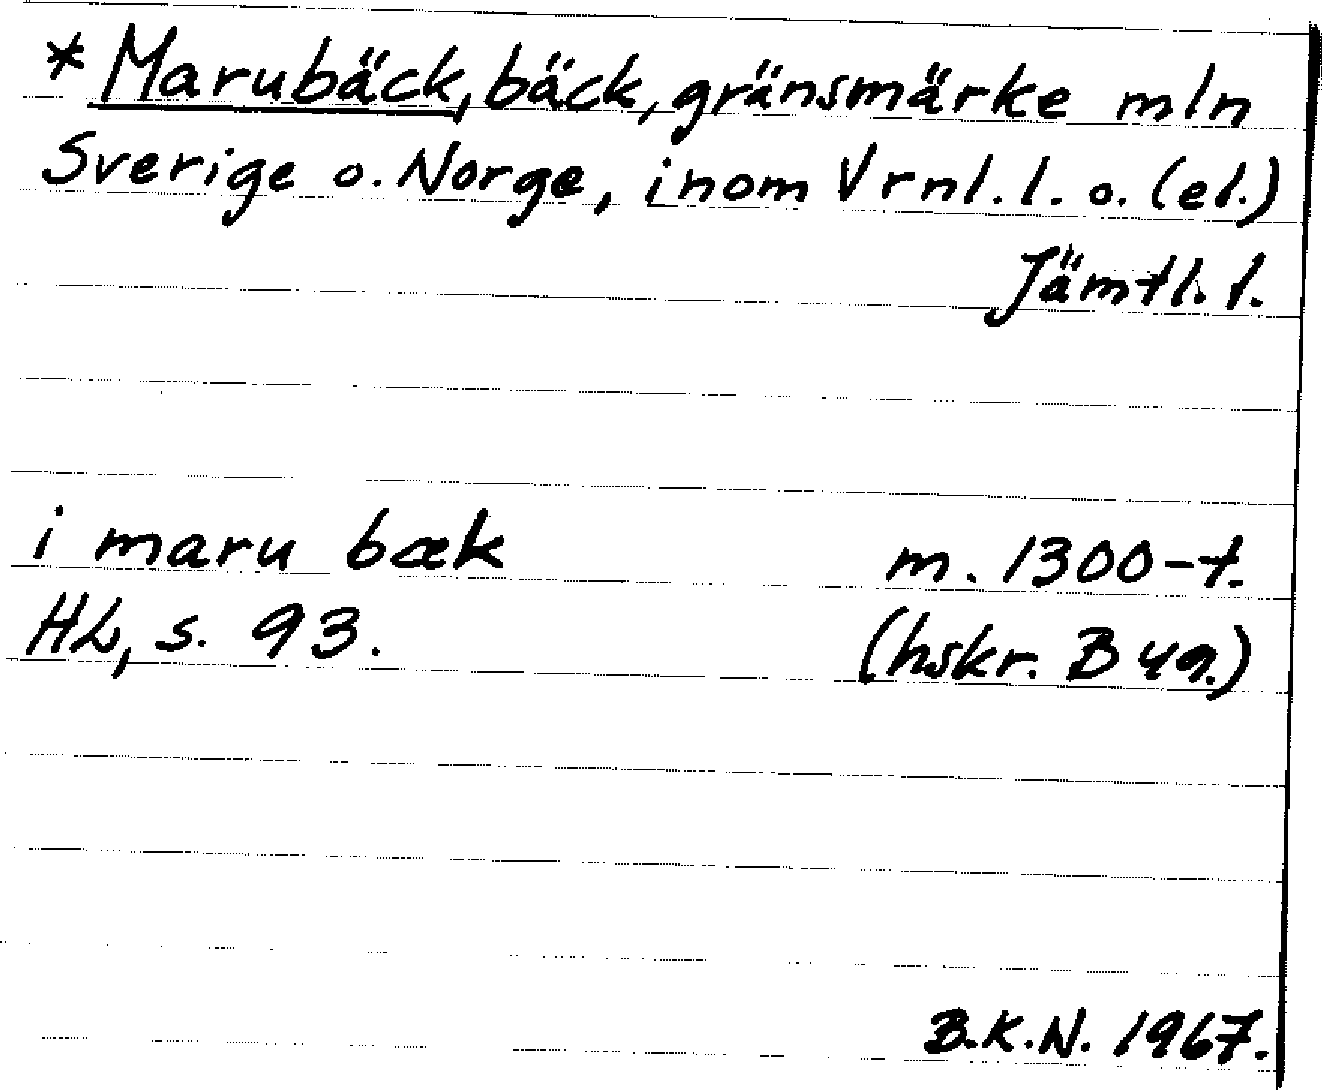 * Marubäck, bäck, gränsmärke mln
Sverige o. Norge, inom Vrnl. l. o. (el.)
Jämtl. l.
i maru bæk m. 1300-t.
HL, s. 93. (hskr. B 49.)
B.K.N. 1967.